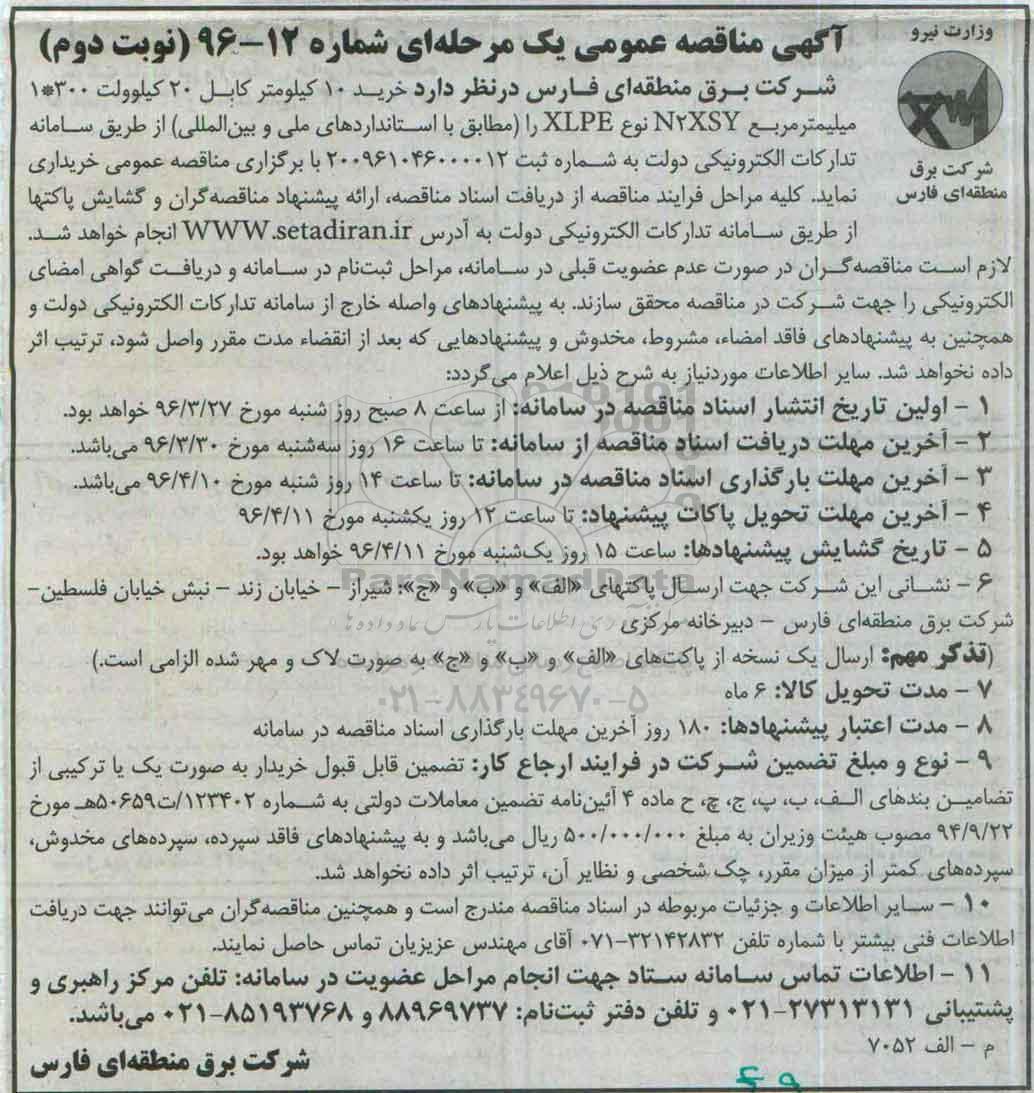 وزارت نیرو
شرکت برق
منطقه‌ای فارس
آگهی مناقصه عمومی یک مرحله‌ای شماره ۱۲-۹۶ (نوبت دوم)
شرکت برق منطقه‌ای فارس درنظر دارد خرید ۱۰ کیلومتر کابل ۲۰ کیلوولت ۳۰۰*۱
میلیمترمربع N۲XSY نوع XLPE را (مطابق با استانداردهای ملی و بین‌المللی) از طریق سامانه
تدارکات الکترونیکی دولت به شماره ثبت ۲۰۰۹۶۱۰۴۶۰۰۰۰۱۲ با برگزاری مناقصه عمومی خریداری
نماید. کلیه مراحل فرایند مناقصه از دریافت اسناد مناقصه، ارائه پیشنهاد مناقصه‌گران و گشایش پاکتها
از طریق سامانه تدارکات الکترونیکی دولت به آدرس WWW.setadiran.ir انجام خواهد شد.
لازم است مناقصه‌گران در صورت عدم عضویت قبلی در سامانه، مراحل ثبت‌نام در سامانه و دریافت گواهی امضای
الکترونیکی را جهت شرکت در مناقصه محقق سازند. به پیشنهادهای واصله خارج از سامانه تدارکات الکترونیکی دولت و
همچنین به پیشنهادهای فاقد امضاء، مشروط، مخدوش و پیشنهادهایی که بعد از انقضاء مدت مقرر واصل شود، ترتیب اثر
داده نخواهد شد. سایر اطلاعات موردنیاز به شرح ذیل اعلام می‌گردد:
۱ - اولین تاریخ انتشار اسناد مناقصه در سامانه: از ساعت ۸ صبح روز شنبه مورخ ۹۶/۳/۲۷ خواهد بود.
۲ - آخرین مهلت دریافت اسناد مناقصه از سامانه: تا ساعت ۱۶ روز سه‌شنبه مورخ ۹۶/۳/۳۰ می‌باشد.
۳ - آخرین مهلت بارگذاری اسناد مناقصه در سامانه: تا ساعت ۱۴ روز شنبه مورخ ۹۶/۴/۱۰ می‌باشد.
۴ - آخرین مهلت تحویل پاکات پیشنهاد: تا ساعت ۱۲ روز یکشنبه مورخ ۹۶/۴/۱۱
۵ - تاریخ گشایش پیشنهادها: ساعت ۱۵ روز یک‌شنبه مورخ ۹۶/۴/۱۱ خواهد بود.
ParsNamadData
۶ - نشانی این شرکت جهت ارسال پاکتهای «الف» و «ب» و «ج»: شیراز - خیابان زند - نبش خیابان فلسطین-
شرکت برق منطقه‌ای فارس - دبیرخانه مرکزی
(تذکر مهم: ارسال یک نسخه از پاکت‌های «الف» و «ب» و «ج» به صورت لاک و مهر شده الزامی است.)
۷ - مدت تحویل کالا: ۶ ماه
۰۲۱-۸۸۳۴۹۶۷۰-۵
۸ - مدت اعتبار پیشنهادها: ۱۸۰ روز آخرین مهلت بارگذاری اسناد مناقصه در سامانه
۹ - نوع و مبلغ تضمین شرکت در فرایند ارجاع کار: تضمین قابل قبول خریدار به صورت یک یا ترکیبی از
تضامین بندهای الف، ب، پ، ج، چ، ح ماده ۴ آئین‌نامه تضمین معاملات دولتی به شماره ۱۲۳۴۰۲/ت۵۰۶۵۹هـ مورخ
۹۴/۹/۲۲ مصوب هیئت وزیران به مبلغ ۵۰۰/۰۰۰/۰۰۰ ریال می‌باشد و به پیشنهادهای فاقد سپرده، سپرده‌های مخدوش،
سپرده‌های کمتر از میزان مقرر، چک شخصی و نظایر آن، ترتیب اثر داده نخواهد شد.
۱۰ - سایر اطلاعات و جزئیات مربوطه در اسناد مناقصه مندرج است و همچنین مناقصه‌گران می‌توانند جهت دریافت
اطلاعات فنی بیشتر با شماره تلفن ۳۲۱۴۲۸۳۲-۰۷۱ آقای مهندس عزیزیان تماس حاصل نمایند.
۱۱ - اطلاعات تماس سامانه ستاد جهت انجام مراحل عضویت در سامانه: تلفن مرکز راهبری و
پشتیبانی ۲۷۳۱۳۱۳۱-۰۲۱ و تلفن دفتر ثبت‌نام: ۸۸۹۶۹۷۳۷ و ۸۵۱۹۳۷۶۸-۰۲۱ می‌باشد.
م - الف ۷۰۵۲
شرکت برق منطقه‌ای فارس